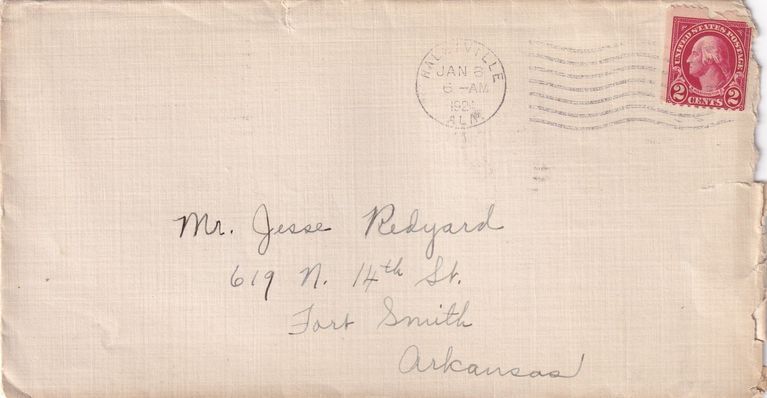 HALEYVILLE
JAN 8
6 -AM
ALA.
UNITED STATES POSTAGE
2 CENTS 2
Mr. Jesse Redyard
619 N. 14th St.
Fort Smith
Arkansas